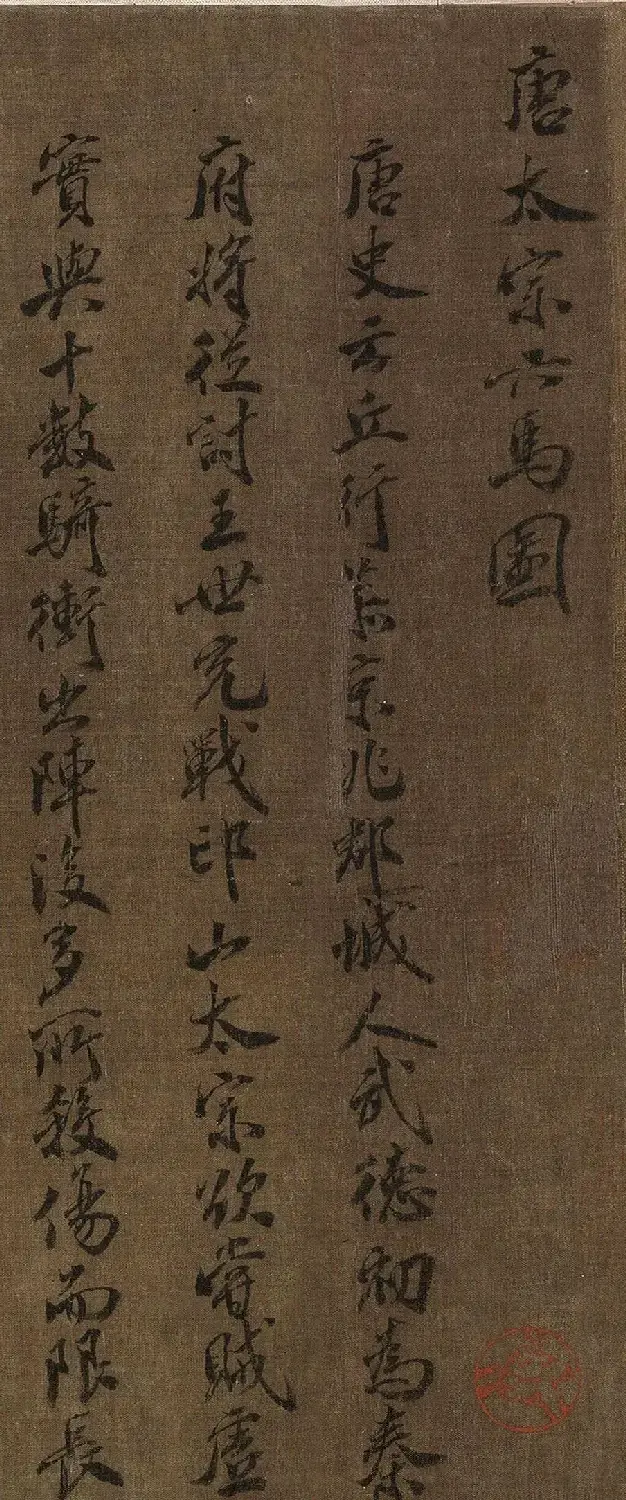 唐太宗六馬圖
唐史云丘行恭京兆郡城人武德初為秦
府將從討王世充戰邙山太宗欲嘗賊虛
實與十數騎衝出陣後多所殺傷而限長